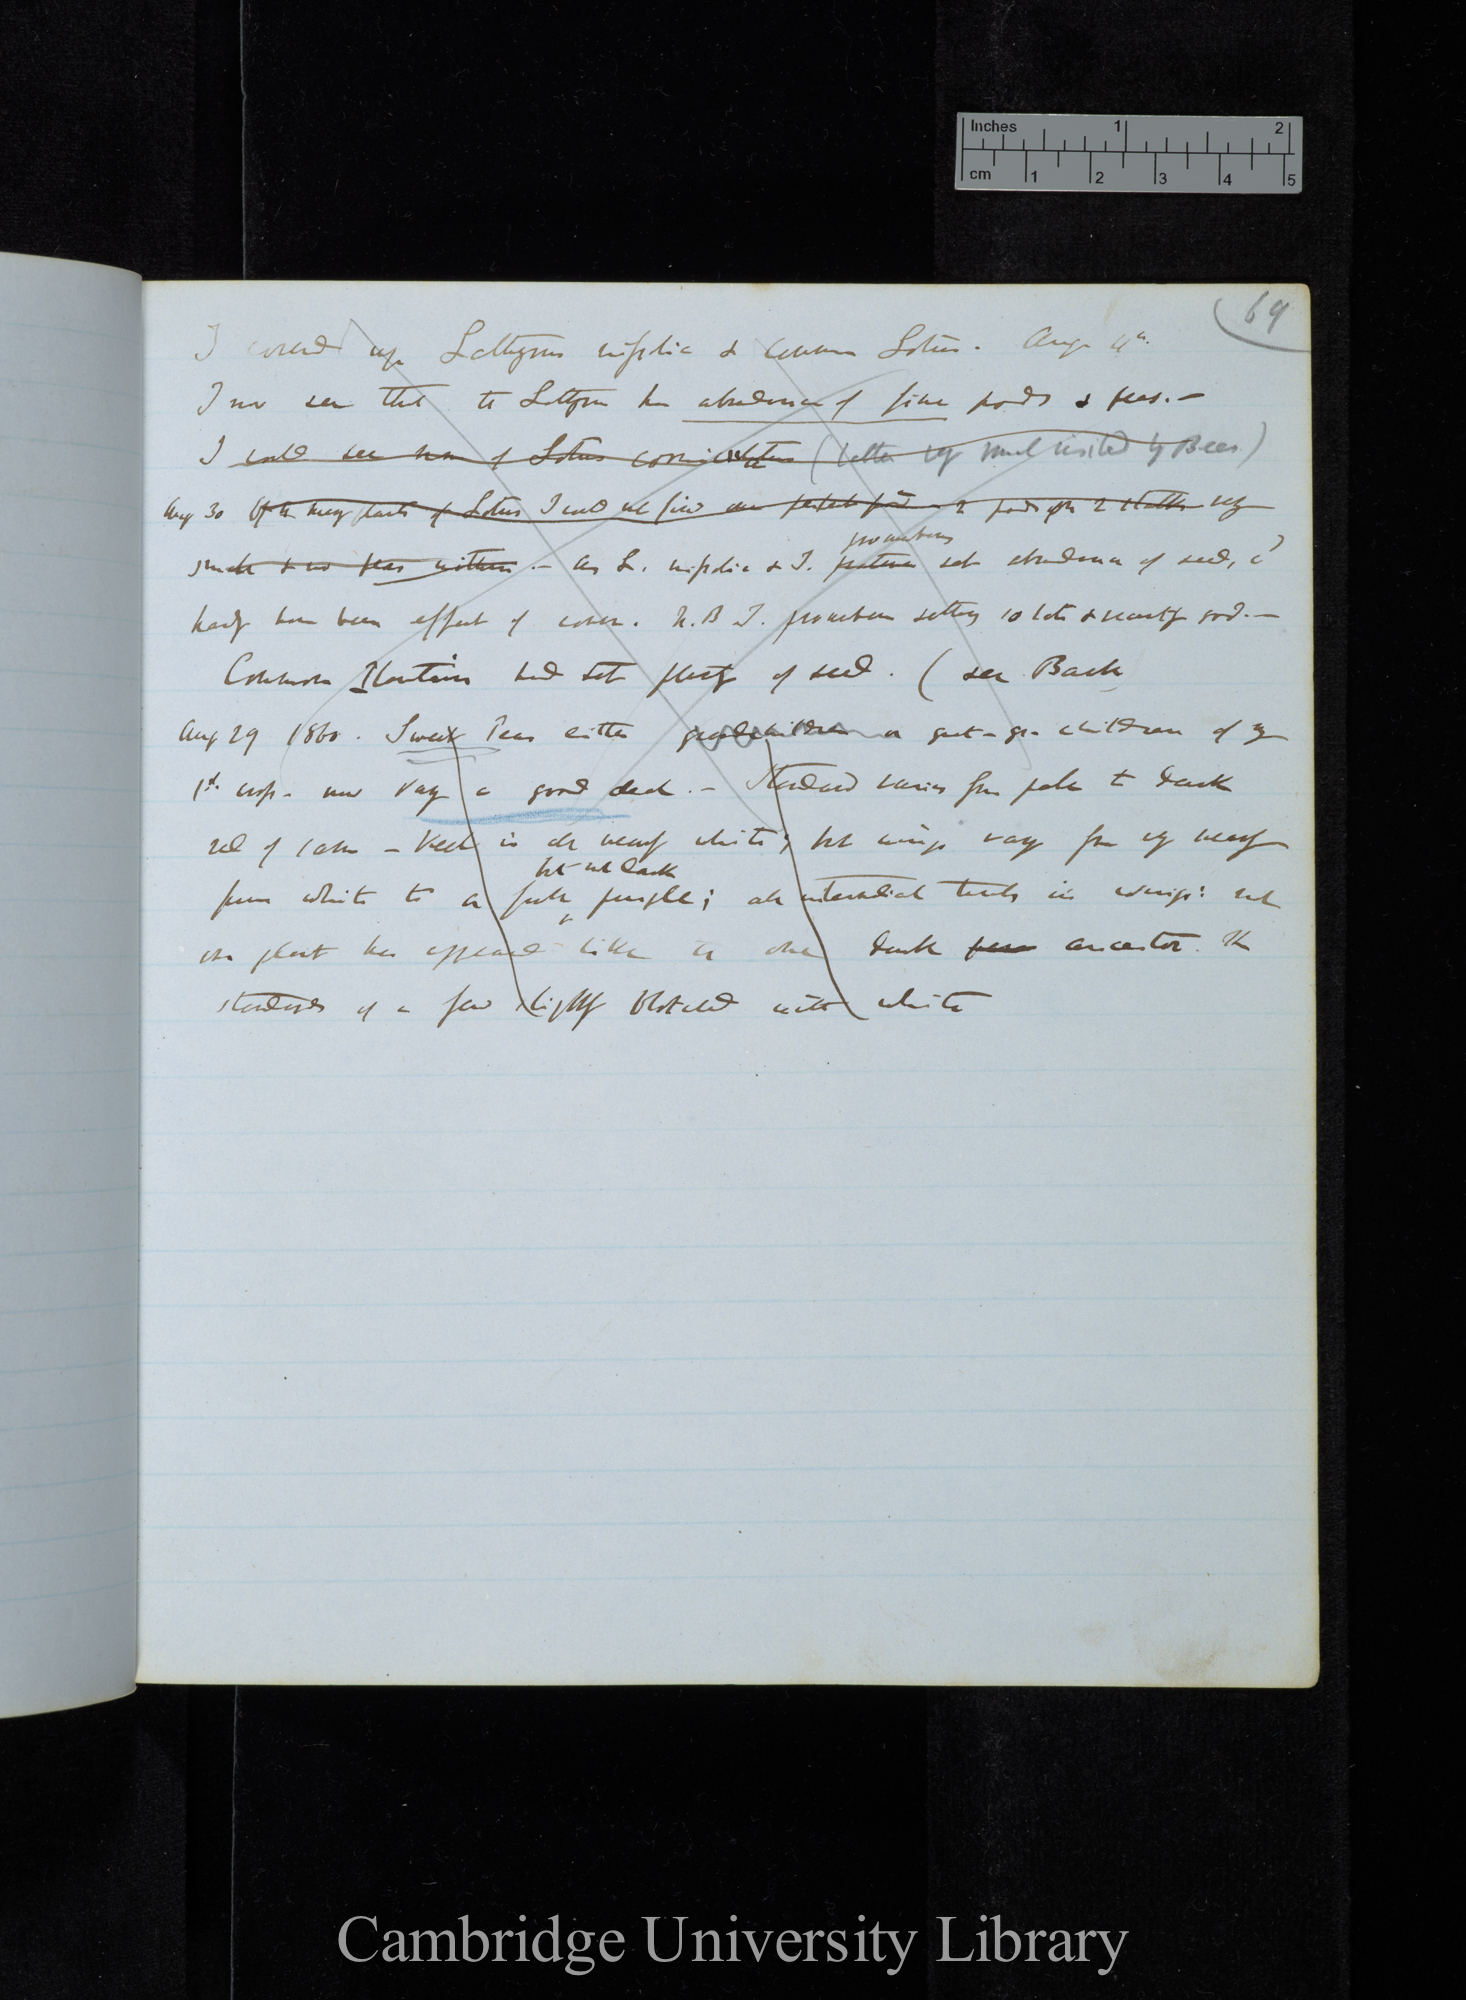 Inches 1 2
cm 1 2 3 4 5
69
I covered up Lathyrus nissolia & common Lotus. Aug. 4th.
I now see that the Lathyrus has abundance of fine pods & peas.—
I could see none of Lotus corniculatus (latter very much visited by Bees)
Aug 30 Of the many plants of Lotus I could not find one perfect pod 2 pods after 2 very
small & no peas within.— As L. nissolia & T. procumbens set abundance of seed, cd
hardly have been effect of cover. N.B T. procumbens setting so late & scarcely good.—
Common Plantain had set plenty of seed. (see Back
Aug 29 1860. Sweet Peas either grandchildren or great-gr. children of my
1st. crop. now vary a good deal.— Standard varies from pale to dark
red of same — Keel is all nearly white; but wings vary from very nearly
but not dark
pure white to a pale purple; all intermediate tints in wings: not
one plant has appeared like the one dark ancestor. The
standards of a few slightly blotched with white
Cambridge University Library